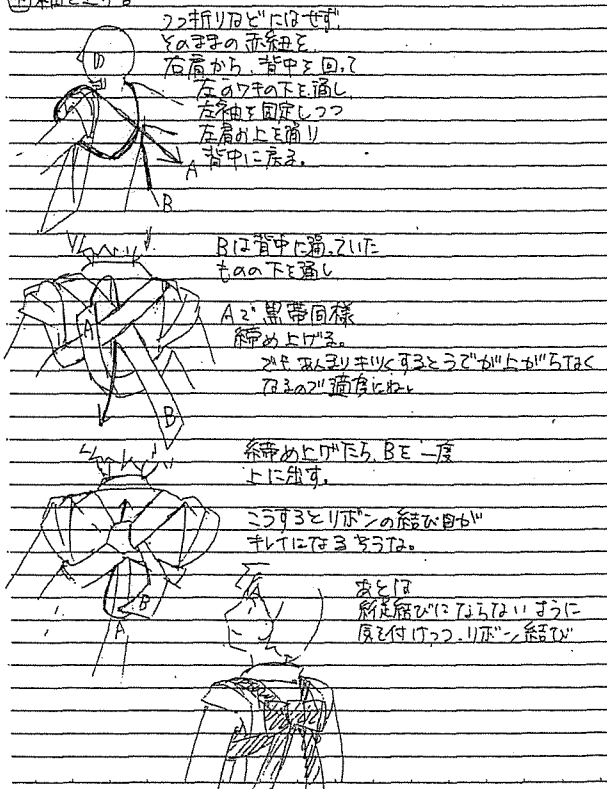 袖を上げる
2つ折りなどにはせず、
そのままの赤紐を
右肩から、背中を回って
左のワキの下を通し
左袖を固定しつつ
左肩の上を通り
背中に戻る。
A
B
Bは背中に通っていた
ものの下を通し
Aで黒帯同様
締め上げる。
でもあんまりキツくするとうでが上がらなく
なるので適度にね。
A
B
締め上げたら、Bを一度
上に出す。
こうするとリボンの結び目が
キレイになるそうな。
B
A
あとは
縦結びにならないように
気を付けつつ、リボン結び